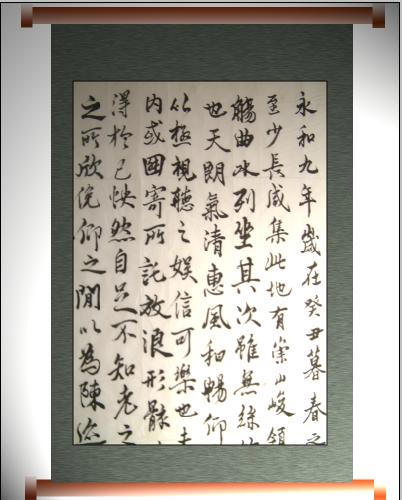 永和九年歲在癸丑暮春之
至少長咸集此地有崇山峻領
觴曲水列坐其次雖無絲
也天朗氣清惠風和暢仰
以極視聽之娛信可樂也夫
內或因寄所託放浪形骸
得於己怏然自足不知老之
之所欣俛仰之閒以為陳迹